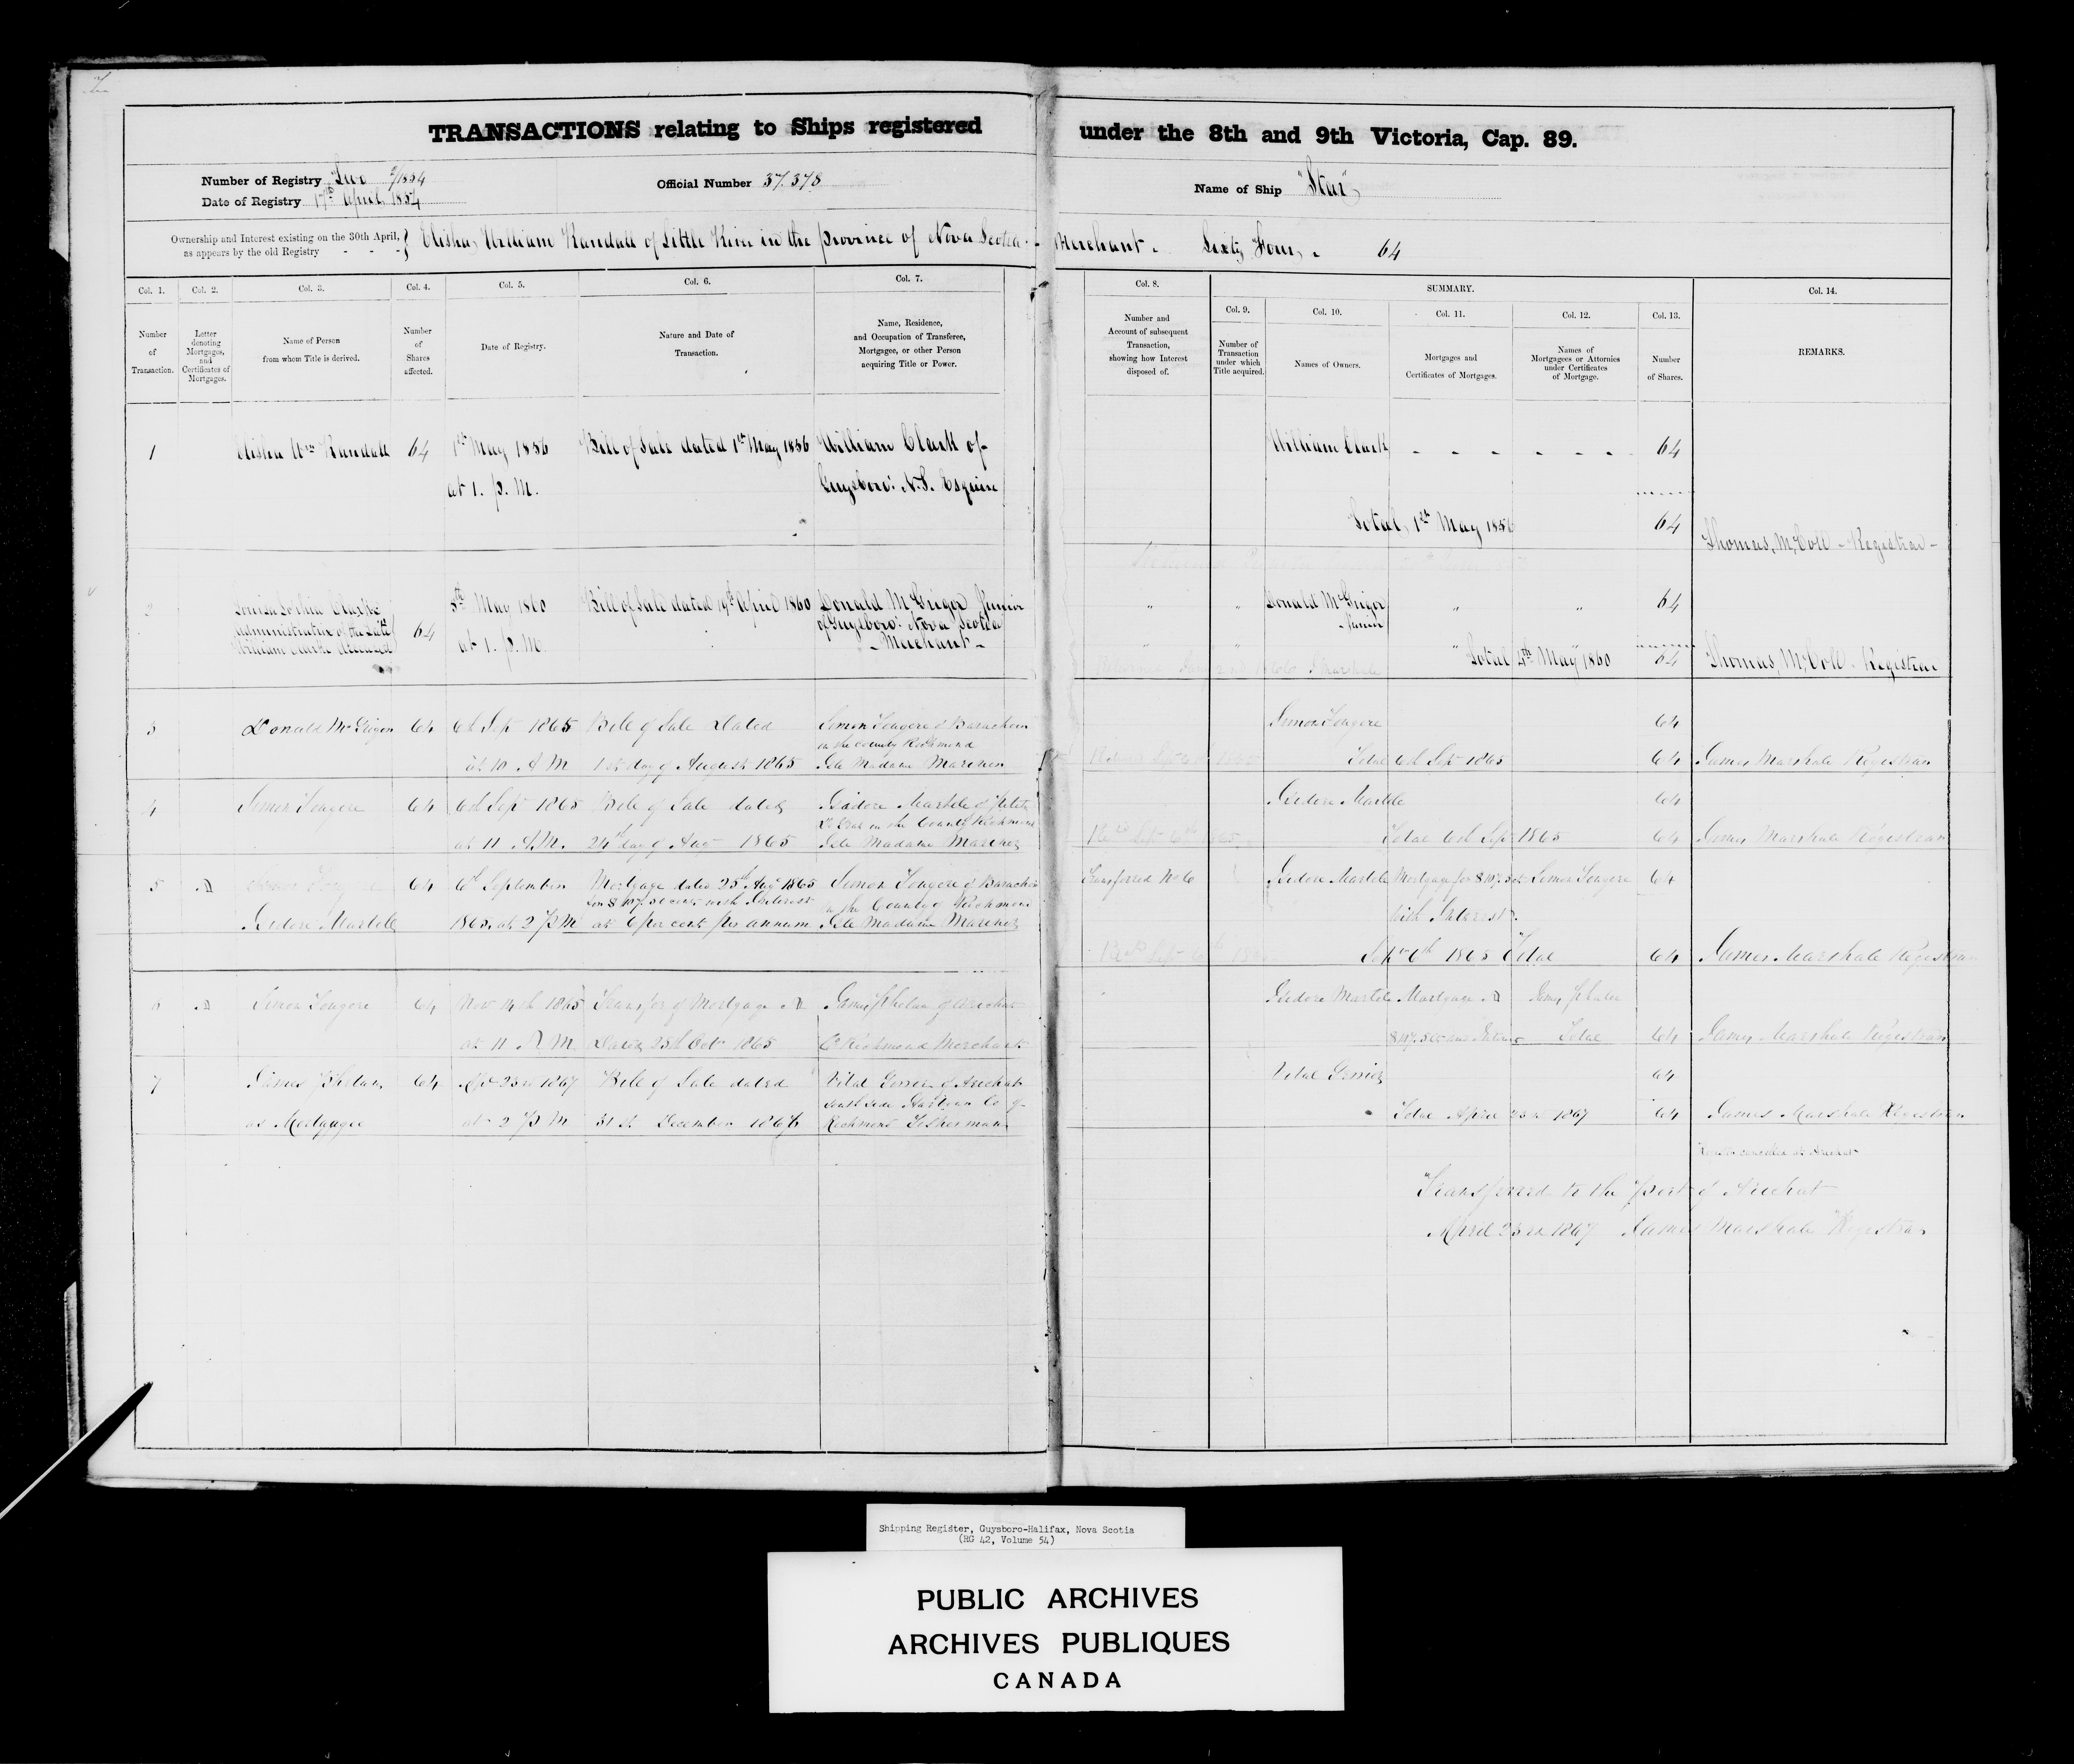 TRANSACTIONS relating to Ships registered under the 8th and 9th Victoria, Cap. 89.
Number of Registry Two 2/1854
Date of Registry 17th April 1854
Official Number 37.378
Name of Ship "Star"
Ownership and Interest existing on the 30th April, as appears by the old Registry - - - } Elisha William Randall of Little River in the province of Nova Scotia - Merchant - Sixty Four - 64
Col. 1. Col. 2. Col. 3. Col. 4. Col. 5. Col. 6. Col. 7. Col. 8. SUMMARY. Col. 14.
Col. 9. Col. 10. Col. 11. Col. 12. Col. 13.
Number of Transaction.
Letter denoting Mortgages, and Certificates of Mortgages.
Name of Person from whom Title is derived.
Number of Shares affected.
Date of Registry.
Nature and Date of Transaction.
Name, Residence, and Occupation of Transferee, Mortgagee, or other Person acquiring Title or Power.
Number and Account of subsequent Transaction, showing how Interest disposed of.
Number of Transaction under which Title acquired.
Names of Owners.
Mortgages and Certificates of Mortgages.
Names of Mortgagees or Attornies under Certificates of Mortgage.
Number of Shares.
REMARKS.
1 Elisha Wm Randall 64 1st May 1856 Bill of Sale dated 1st May 1856 William Clark of William Clark - - - - - - - 64
at 1. p. M. Guysboro' N.S. Esquire
Total, 1st May 1856 64
Thomas, McColl - Registrar -
2 Louisa Sophia Clarke 5th May 1860 Bill of Sale dated 19th April 1860 Donald McGregor Junior " " Donald McGregor " " 64
Administratrix of the Late 64 of Guysboro' Nova Scotia Junior
William Clarke deceased at 1. p. M. - Merchant - Total 4th May 1860 64 Thomas, McColl - Registrar
3 Donald McGregor 64 6th Sep 1865 Bill of Sale Dated Simon Fougere of Barachois Simon Fougere 64
in the County Richmond
at 10 A M 1st day of August 1865 Isle Madame Mariner Total 6th Sept 1865 64 James Marshall Registrar
4 Simon Fougere 64 6th Sept 1865 Bill of Sale dated Isidore Martell of Petit Isidore Martell 64
De Grat in the County Richmond
at 11 A.M. 24th day of Aug 1865 Isle Madame Mariner Recd Sept 6th 1865 Total 6th Sept 1865 64 James Marshall Registrar
5 A 64 6th September Mortgage dated 25th Aug 1865 Simon Fougere of Barachois Transferred No 6 Isidore Martell Mortgage for $107.50 Simon Fougere 64
for $107.50 cents with Interest in the County of Richmond with Interest
Isidore Martell 1865. at 2 P M at 6 per cent per annum Isle Madame Mariner
Sept 6th 1865 Total 64 James Marshall Registrar
6 A Simon Fougere 64 Nov 14th 1865 Transfer of Mortgage A James Phelan of Arichat Isidore Martell Mortgage A James Phelan
at 11 A M. Dated 25th Oct 1865 Co Richmond Merchant $107.50 and Interest Total 64 James Marshall Registrar
7 James Phelan 64 Apl 23rd 1867 Bill of Sale dated Vital Grenier of Arichat Vital Grenier 64
south side Harbour Co of
as Mortgagee at 2 P M 31st December 1866 Richmond Fisherman Total April 23rd 1867 64 James Marshall Registrar
Register cancelled at Arichat
Transferred to the port of Arichat
April 23rd 1867 James Marshall Registrar
Shipping Register, Guysboro-Halifax, Nova Scotia
(RG 42, Volume 54)
PUBLIC ARCHIVES
ARCHIVES PUBLIQUES
CANADA